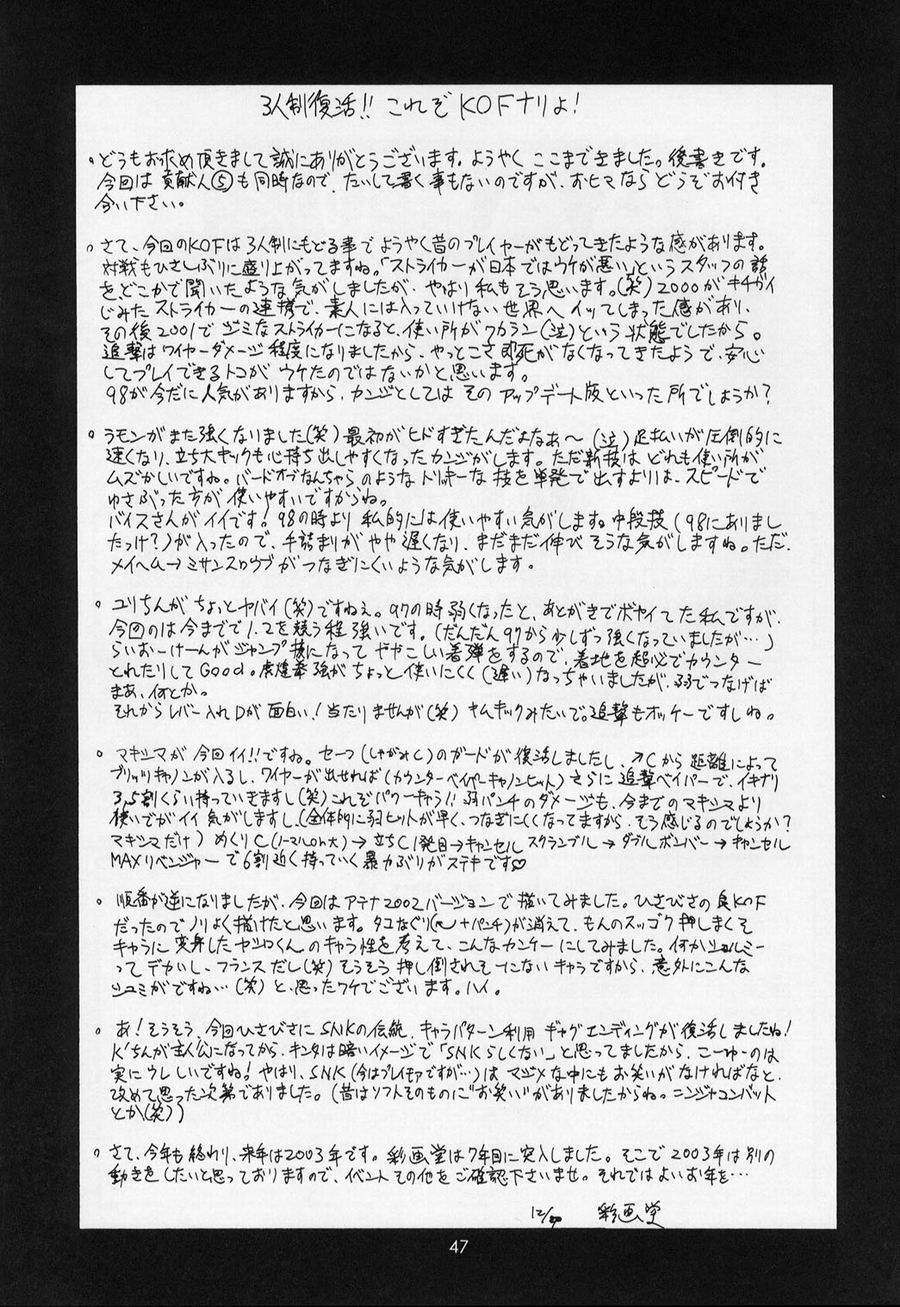 3人制復活!! これぞKOFナリよ!
。どうもお求め頂きまして誠にありがとうございます。ようやくここまできました。後書きです。
今回は貢献人⑤も同時なので、たいして書く事もないのですが、おヒマならどうぞお付き
合い下さい。
。さて、今回のKOFは3人制にもどる事でようやく昔のプレイヤーがもどってきたような感があります。
対戦もひさしぶりに盛り上がってますね。「ストライカーが日本ではウケが悪い」というスタッフの話
を、どこかで聞いたような気がしましたが、やはり私もそう思います。(笑)2000がキチガイ
じみたストライカーの連携で、素人には入っていけない世界へイッてしまった感があり、
その後2001でジミなストライカーになると、使い所がワカラン(泣)という状態でしたから。
追撃はワイヤーダメージ程度になりましたから、やっとこさ即死がなくなってきたようで、安心
してプレイできるトコがウケたのではないかと思います。
98が今だに人気がありますから、カンジとしてはそのアップデート版といった所でしょうか?
。ラモンがまた強くなりました(笑)最初がヒドすぎたんだよなあ〜(泣)足払いが圧倒的に
速くなり、立ち大キックも心持ち出しやすくなったカンジがします。ただ新技はどれも使い所が
ムズかしいですね。バードオブなんちゃらのようなトリッキーな技を単発で出すよりは、スピードで
ゆさぶった方が使いやすいですからね。
バイスさんがイイです!98の時より私的には使いやすい気がします。中段技(98にありまし
たっけ?)が入ったので、手詰まりがやや遅くなり、まだまだ伸びそうな気がしますね。ただ、
メイヘム→ミサンスロウプがつなぎにくいような気がします。
。ユリちんがちょっとヤバイ(笑)ですねぇ。97の時弱くなったと、あとがきでボヤイてた私ですが、
今回のは今までで1.2を競う程強いです。(だんだん97から少しずつ強くなっていましたが…)
らいおーけーんがジャンプ技になってややこしい着弾をするので、着地を超必でカウンター
とれたりしてGood。虎煌拳強がちょっと使いにくく(遅い)なっちゃいましたが、弱でつなげば
まあ、何とか。
それからレバー入れDが面白い!当たりませんが(笑)キムキックみたいで。追撃もオッケーですしね。
。マキシマが今回イイ!!ですね。セーフ(しゃがみC)のガードが復活しましたし、↗Cから距離によって
ブリッツキャノンが入るし、ワイヤーが出せれば(カウンターベイパーキャノンヒット)さらに追撃ベイパーで、イキナリ
3,5割くらい持っていきますし(笑)これぞパワーキャラ!!弱パンチのダメージも、今までのマキシマより
使いでがイイ気がしますし、(全体的に弱ヒットが早く、つなぎにくくなってますから、そう感じるのでしょうか?
マキシマだけ)めくりC(ノーマルOnh大)→立ちC1発目→キャンセルスクランブル→ダブルボンバー→キャンセル
MAXリベンジャーで6割近く持っていく暴力ぶりがステキです♡
。順番が逆になりましたが、今回はアテナ2002バージョンで描いてみました。ひさびさの良KOF
だったのでノリよく描けたと思います。タコなぐり(+パンチ)が消えて、もんのスッゴク押しまくそ
キャラに変身したヤシロくんのキャラ性を考えて、こんなカンケーにしてみました。何かシェルミー
ってデカいし、フランスだし(笑)そうそう押し倒されそーにないキャラですから、意外にこんな
シュミがですね…(笑)と、思ったワケでございます。ハイ。
。あ!そうそう、今回ひさびさにSNKの伝統、キャラパターン利用ギャグエンディングが復活しましたね!
K'ちんが主人公になってから、キンタは暗いイメージで「SNKらしくない」と思ってましたから、こーゆーのは
実にウレしいですね!やはり、SNK(今はプレイモアですが…)は、マジメな中にもお笑いがなければなと、
改めて思った次第でありました。(昔はソフトそのものに"お笑い"がありましたからね。ニンジャコンバット
とか(笑))
。さて、今年も終わり、来年は2003年です。彩画堂は7年目に突入しました。そこで2003年は別の
動きをしたいと思っておりますので、イベントその他をご確認下さいませ。それではよいお年を…
彩画堂
47